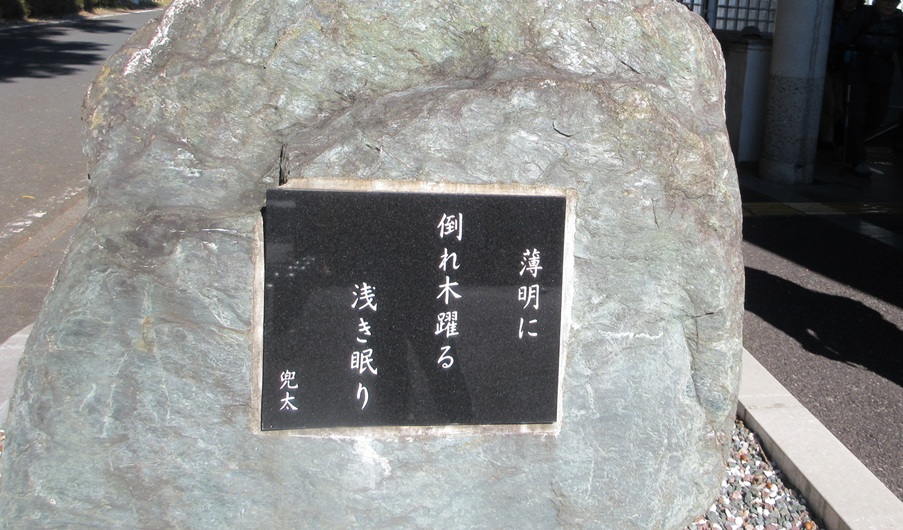 薄明に
倒れ木躍る
浅き眠り
兜太